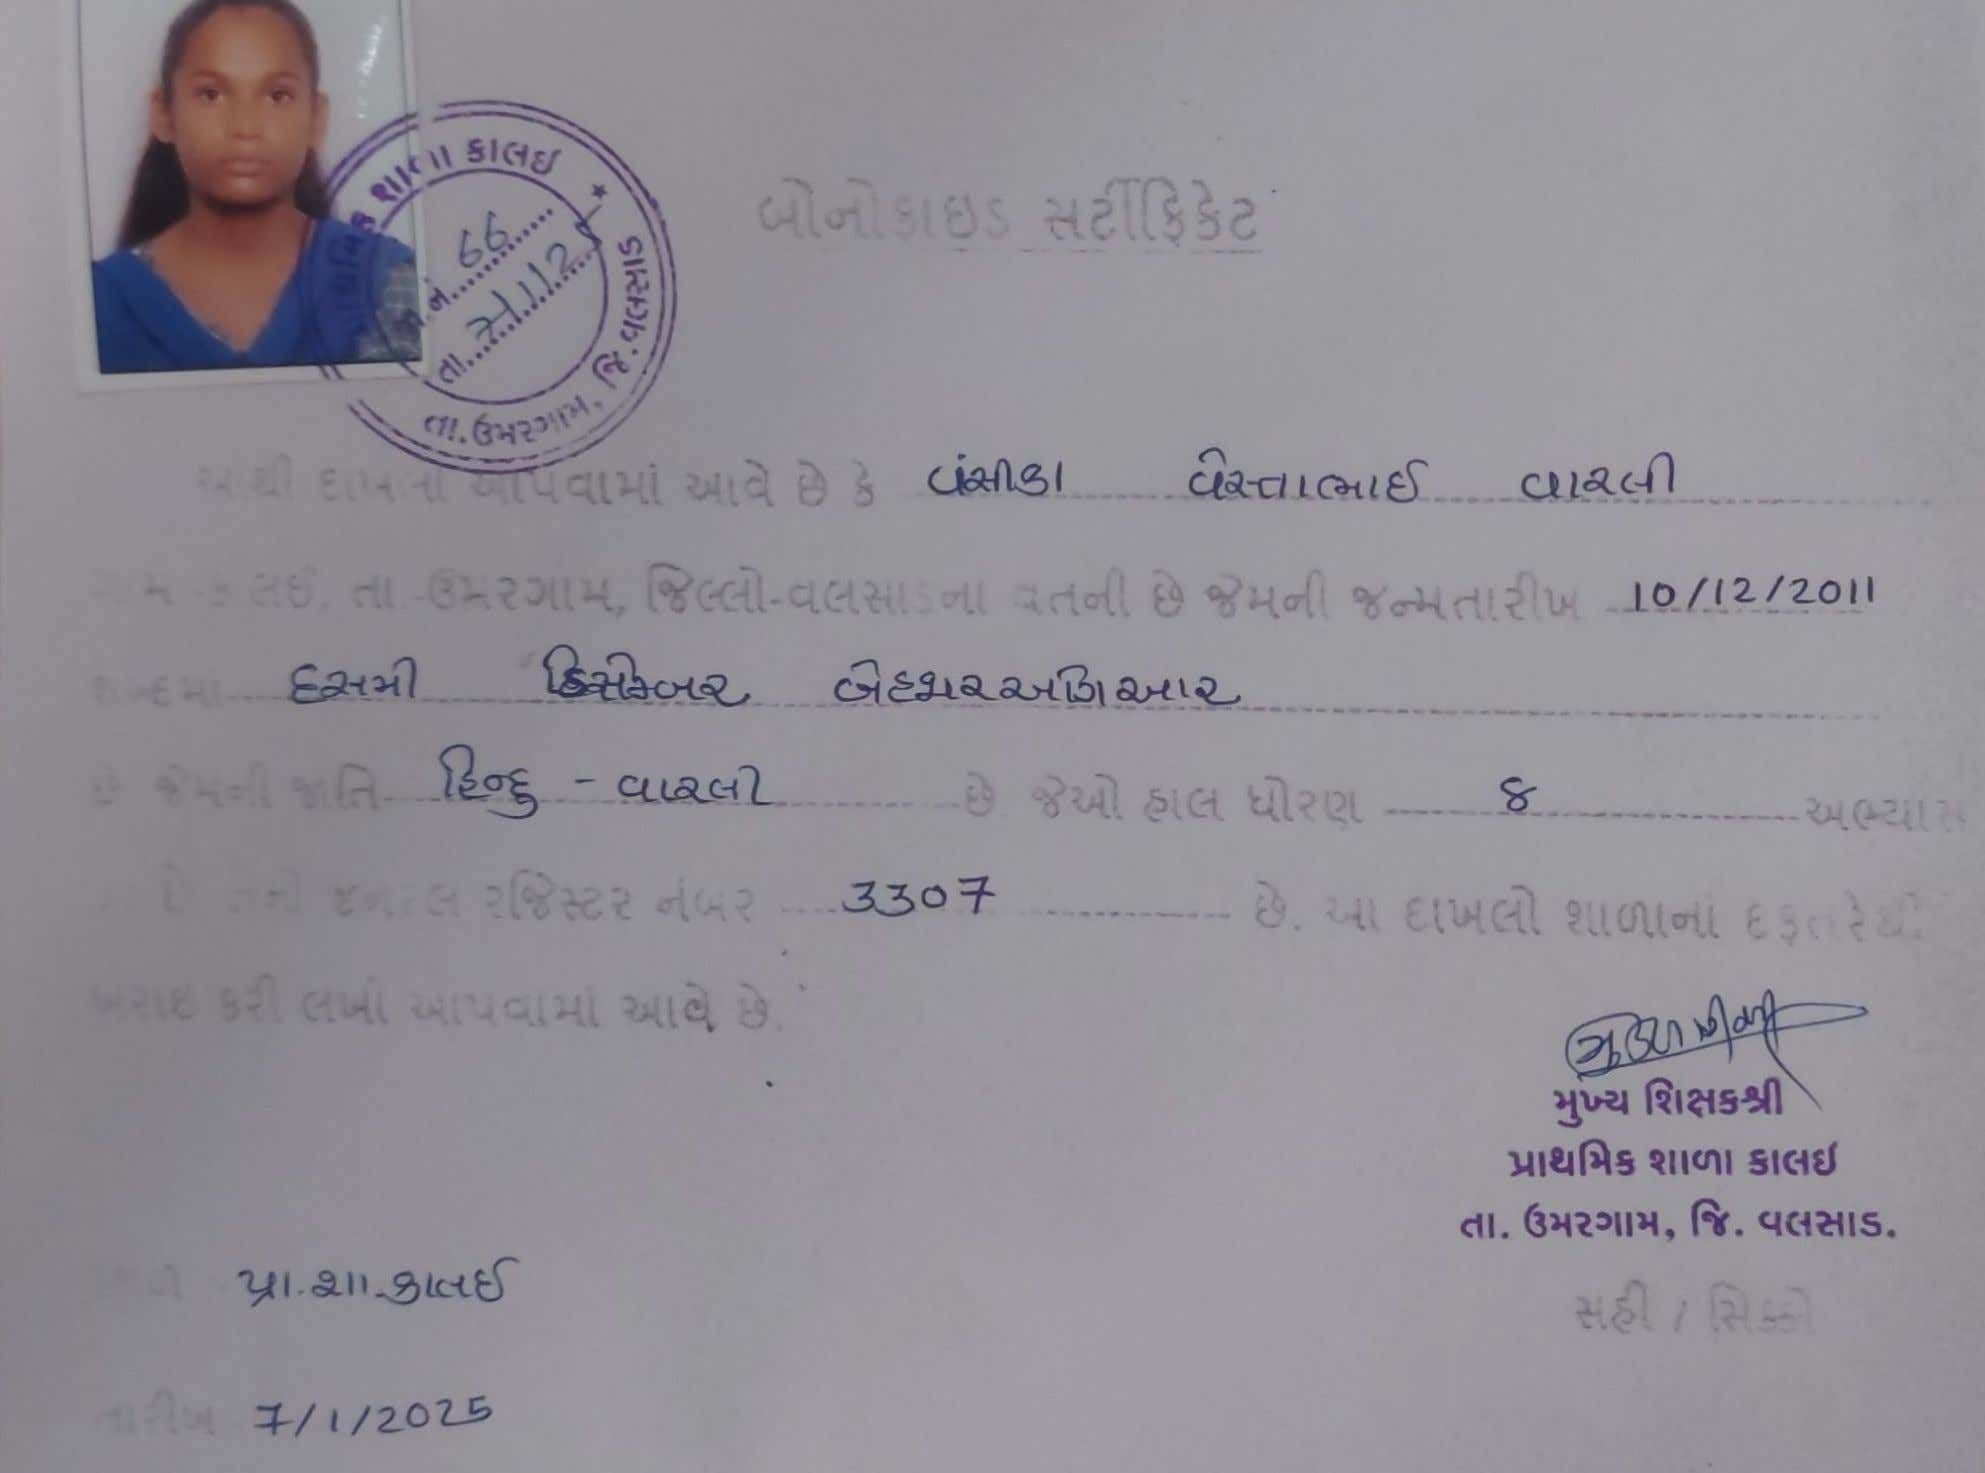 શાળા કાલઇ
66
તા. ઉમરગામ, જિ. વલસાડ
બોનોફાઇડ સર્ટીફિકેટ
આથી દાખલો આપવામાં આવે છે કે વંસીકા વેસ્તાભાઈ વારલી
ગામ-કાલઈ, તા.-ઉમરગામ, જિલ્લો-વલસાડના વતની છે જેમની જન્મતારીખ 10/12/2011
શબ્દમાં દસમી ડિસેમ્બર બેહજારઅગિઆર
છે જેમની જાતિ હિન્દુ - વારલી છે જેઓ હાલ ધોરણ ૪ અભ્યાસ
જનરલ રજિસ્ટર નંબર 3307 છે. આ દાખલો શાળાનાં દફતરેથી
ખરાઇ કરી લખી આપવામાં આવે છે.
મુખ્ય શિક્ષકશ્રી
પ્રાથમિક શાળા કાલઇ
તા. ઉમરગામ, જિ. વલસાડ.
પ્રા.શા.કાલઈ
સહી / સિક્કો
તારીખ 7/1/2025